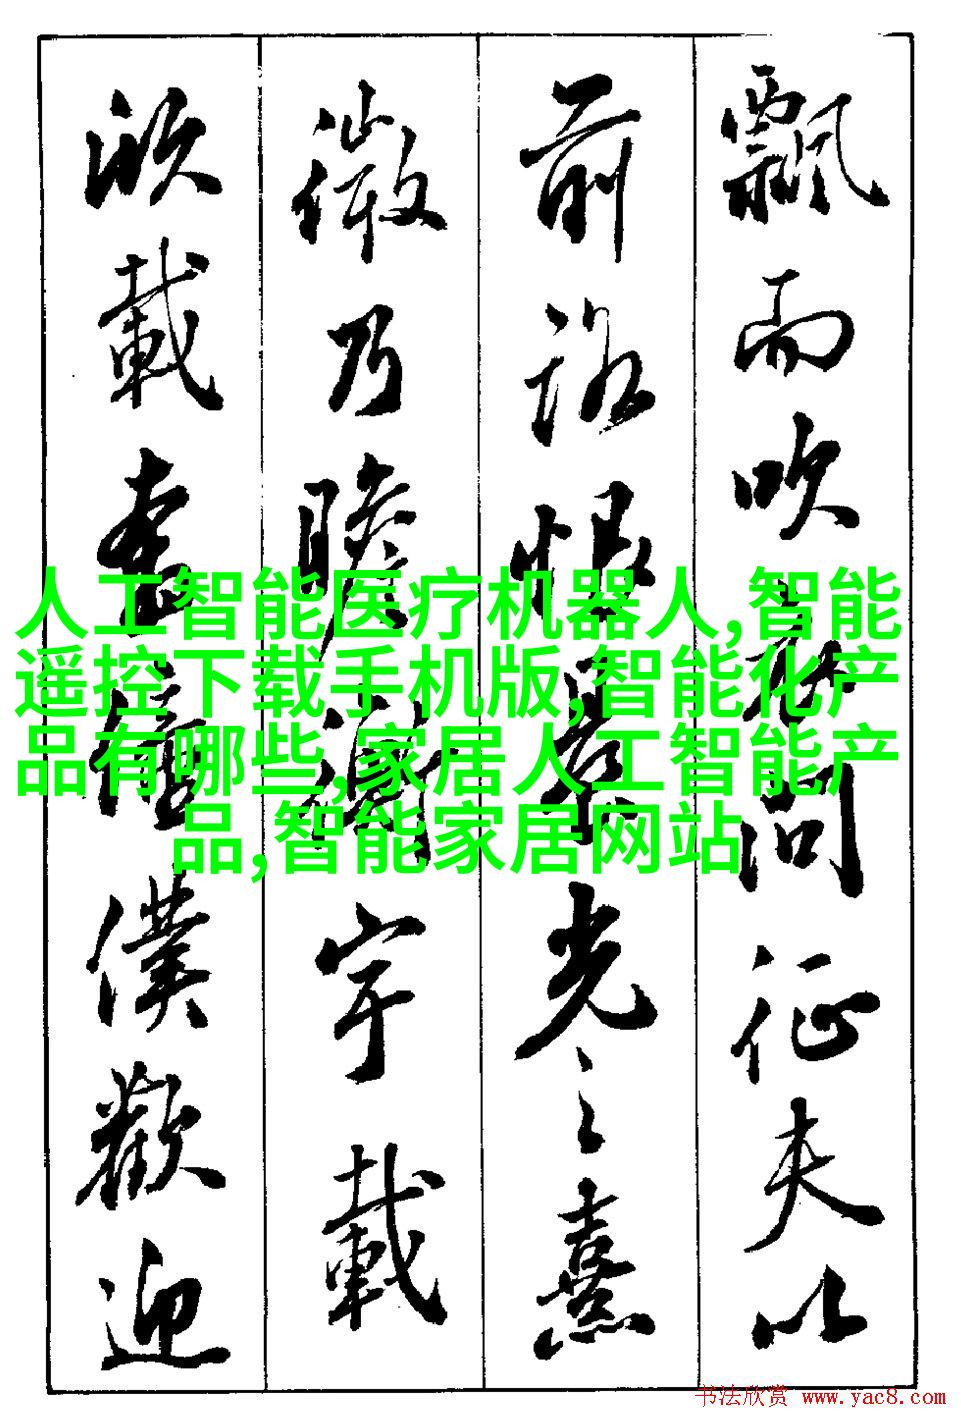 飄而吹衣問征夫以
前路恨晨光之熹
微乃瞻衡宇載
欣載奔僮僕歡迎
人工智能医疗机器人,智能
遥控下载手机版,智能化产
品有哪些,家居人工智能产
品,智能家居网站
书法欣赏 www.yac8.com